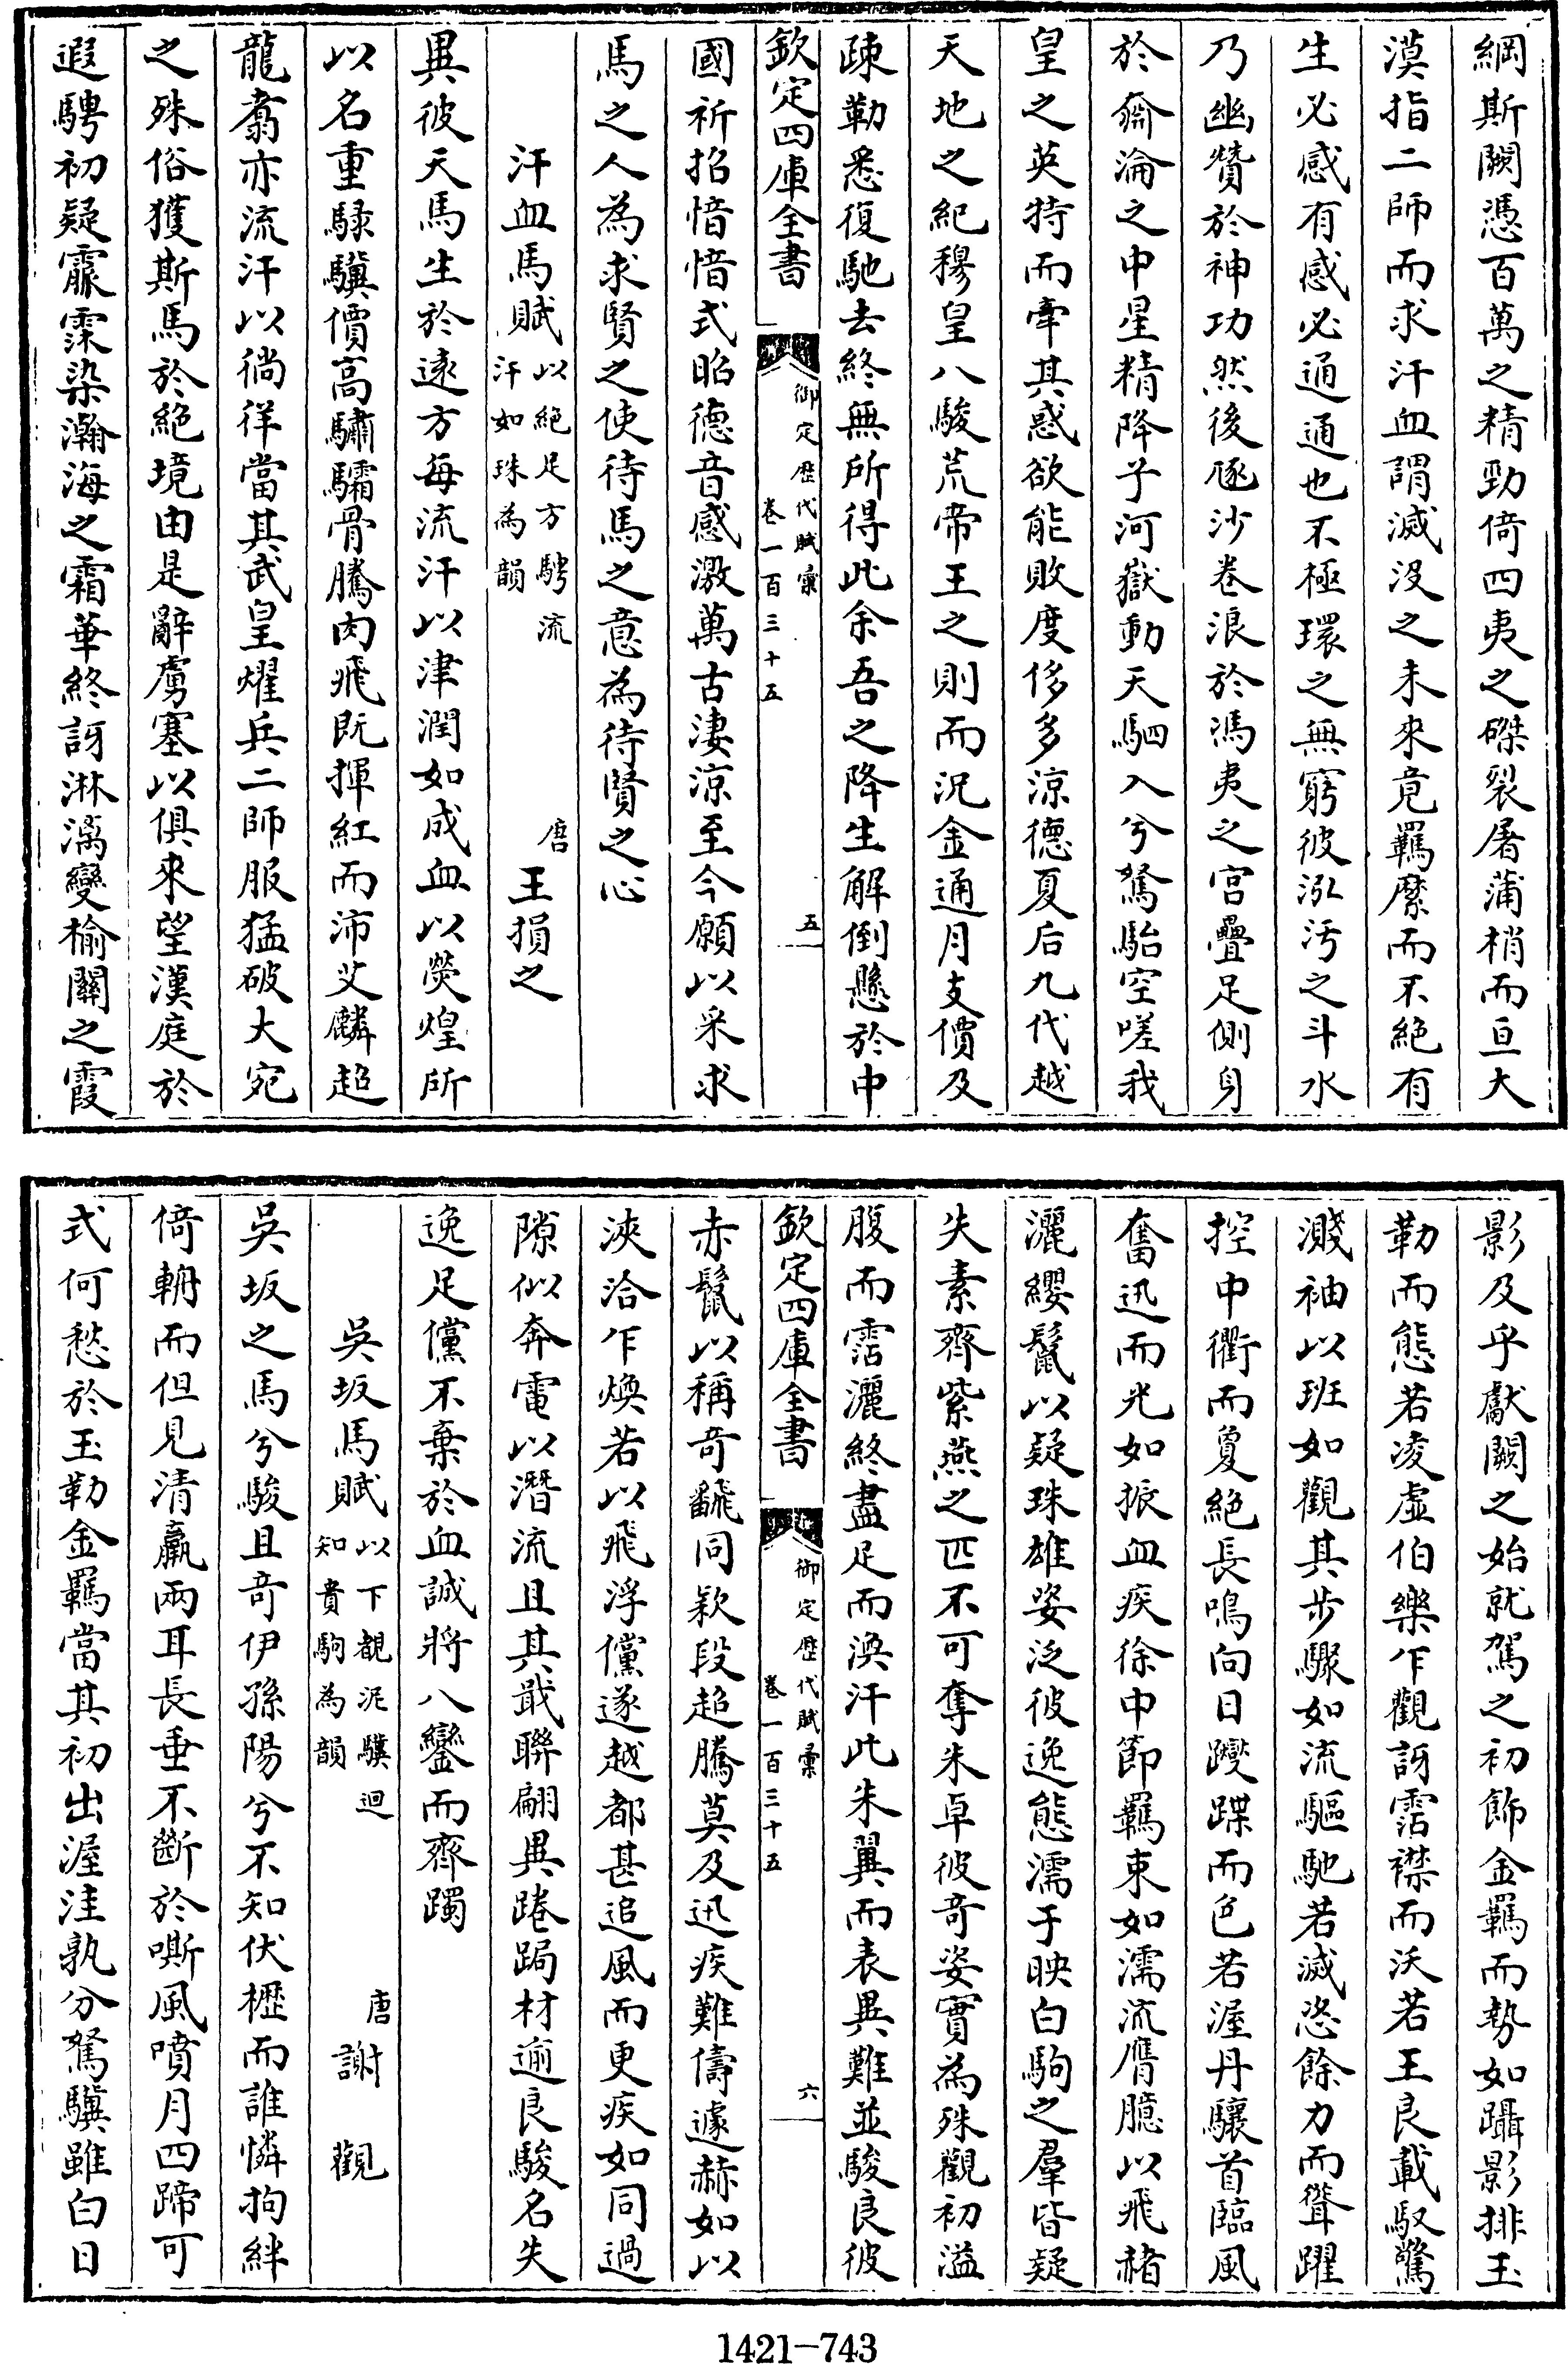 綱斯闕憑百萬之精勁倚四夷之磔裂屠蒲梢而亘大
漠指二師而求汗血謂滅没之未來竟羈縻而不絶有
生必感有感必通通也不極環之無窮彼泓汚之斗水
乃幽贊於神功然後豗沙卷浪於馮夷之宫疊足側身
於奫淪之中星精降子河嶽動天駟入兮駑駘空嗟我
皇之英特而牽其惑欲能敗度侈多涼德夏后九代越
天地之紀穆皇八駿荒帝王之則而況金通月支價及
疎勒悉復馳去終無所得此余吾之降生解倒懸於中
欽定四庫全書
御定歴代賦彚
卷一百三十五
五
國祈招愔愔式昭德音感激萬古淒涼至今願以采求
馬之人為求賢之使待馬之意為待賢之心
汗血馬賦以絶足方騁流汗如珠為韻 唐王損之
異彼天馬生於遠方每流汗以津潤如成血以熒煌所
以名重騄驥價高驌驦骨騰肉飛既揮紅而沛艾麟超
龍翥亦流汗以徜徉當其武皇燿兵二師服猛破大宛
之殊俗獲斯馬於絶境由是辭虜塞以俱來望漢庭於
遐騁初疑霢霂染瀚海之霜華終訝淋漓變榆關之霞
影及乎獻闕之始就駕之初飾金羈而勢如躡影排玉
勒而態若凌虚伯樂乍觀訝霑襟而沃若王良載馭驚
濺袖以班如觀其步驟如流驅馳若滅恣餘力而聳躍
控中衢而敻絶長鳴向日躞蹀而色若渥丹驤首臨風
奮迅而光如振血疾徐中節羈束如濡流膺臆以飛赭
灑纓鬣以疑珠雄姿泛彼逸態濡于映白駒之羣皆疑
失素齊紫燕之匹不可奪朱卓彼竒姿實為殊觀初溢
腹而霑灑終盡足而渙汗此朱翼而表異難並駿良彼
赤鬣以稱竒飜同欵段超騰莫及迅疾難儔遽赫如以
浹洽乍煥若以飛浮儻遂越都甚追風而更疾如同過
隙似奔電以潛流且其戢聯翩異踡跼材逾良駿名失
逸足儻不棄於血誠將八鑾而齊躅
吳坂馬賦以下覩泥驥迴知貴駒為韻 唐謝觀
吳坂之馬兮駿且竒伊孫陽兮不知伏櫪而誰憐拘絆
倚輈而但見清羸兩耳長垂不斷於嘶風噴月四蹄可
式何愁於玉勒金羈當其初出渥洼孰分駑驥雖白日
欽定四庫全書
御定歴代賦彚
卷一百三十五
六
1421-743